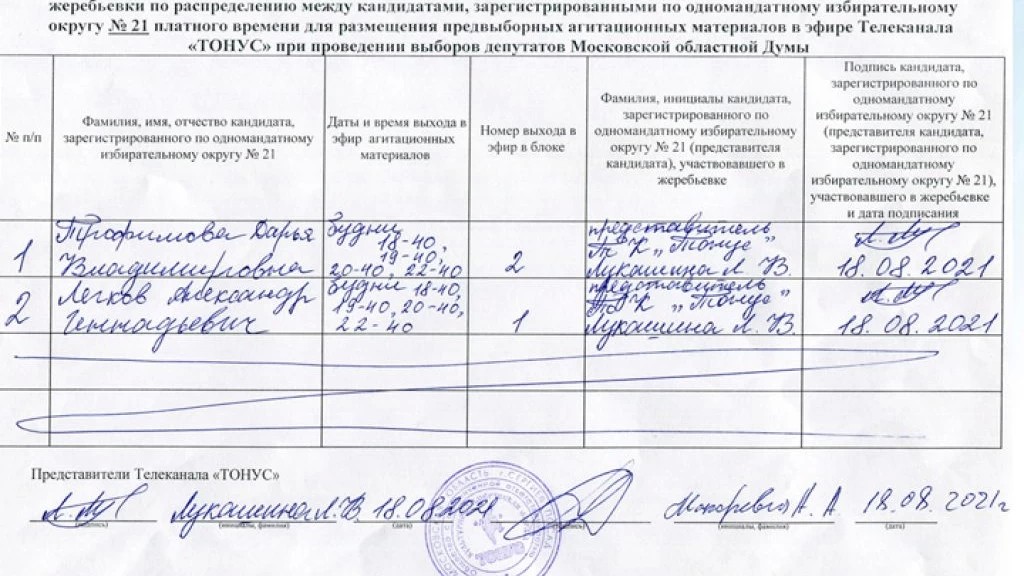 жеребьевки по распределению между кандидатами, зарегистрированными по одномандатному избирательному
округу № 21 платного времени для размещения предвыборных агитационных материалов в эфире Телеканала
«ТОНУС» при проведении выборов депутатов Московской областной Думы
№ п/п
Фамилия, имя, отчество кандидата,
зарегистрированного по одномандатному
избирательному округу № 21
Даты и время выхода в
эфир агитационных
материалов
Номер выхода в
эфир в блоке
Фамилия, инициалы кандидата,
зарегистрированного по
одномандатному избирательному
округу № 21 (представителя
кандидата), участвовавшего в
жеребьевке
Подпись кандидата,
зарегистрированного по
одномандатному
избирательному округу № 21
(представителя кандидата,
зарегистрированного по
одномандатному
избирательному округу № 21),
участвовавшего в жеребьевке
и дата подписания
1
Трофимова Дарья
Владимировна
Будни
18-40,
19-40,
20-40, 22-40
2
представитель
Т К „Тонус"
Лукашина Л. В.
18.08.2021
2
Легков Александр
Геннадьевич
Будни 18-40,
19-40, 20-40,
22-40
1
представитель
Т К „Тонус"
Лукашина Л. В.
18.08.2021
Представители Телеканала «ТОНУС»
Лукашина Л. В. 18.08.2021
А. А. 18.08.2021г
(подпись) (инициалы, фамилия) (дата) (подпись) (инициалы, фамилия) (дата)